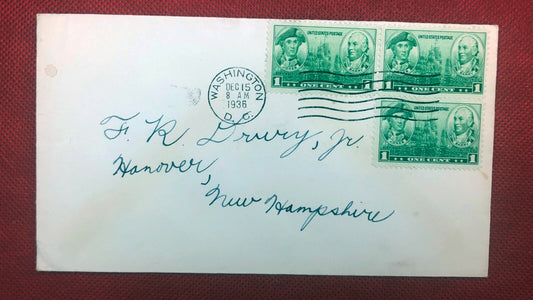 UNITED STATES POSTAGE
1 ONE CENT 1
UNITED STATES POSTAGE
1 ONE CENT 1
WASHINGTON
DEC 15
8 AM
1936
D. C.
1 ONE CENT 1
F. R. Drury, Jr.
Hanover,
New Hampshire